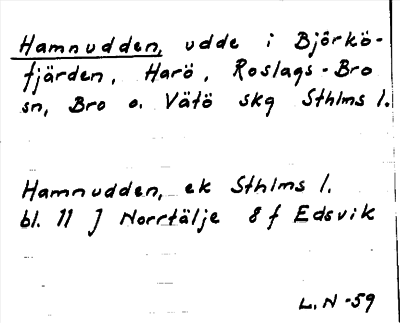 Hamnudden, udde i Björkö-
fjärden, Harö, Roslags-Bro
sn, Bro o. Vätö skg Sthlms l.
Hamnudden, ek Sthlms l.
bl. 11 J Norrtälje 8 f Edsvik
L. N -59